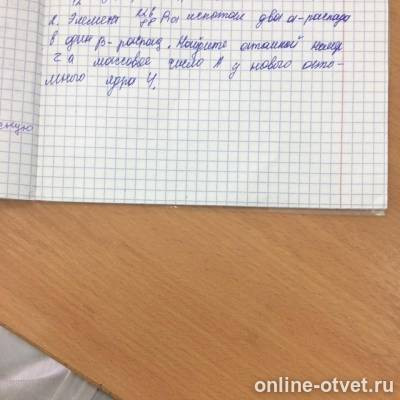 2. Элемент Ra испытал два α-распада
и один β-распад. Найдите атомный номер
Z и массовое число A у нового ато-
много ядра Y.
скую
online-otvet.ru